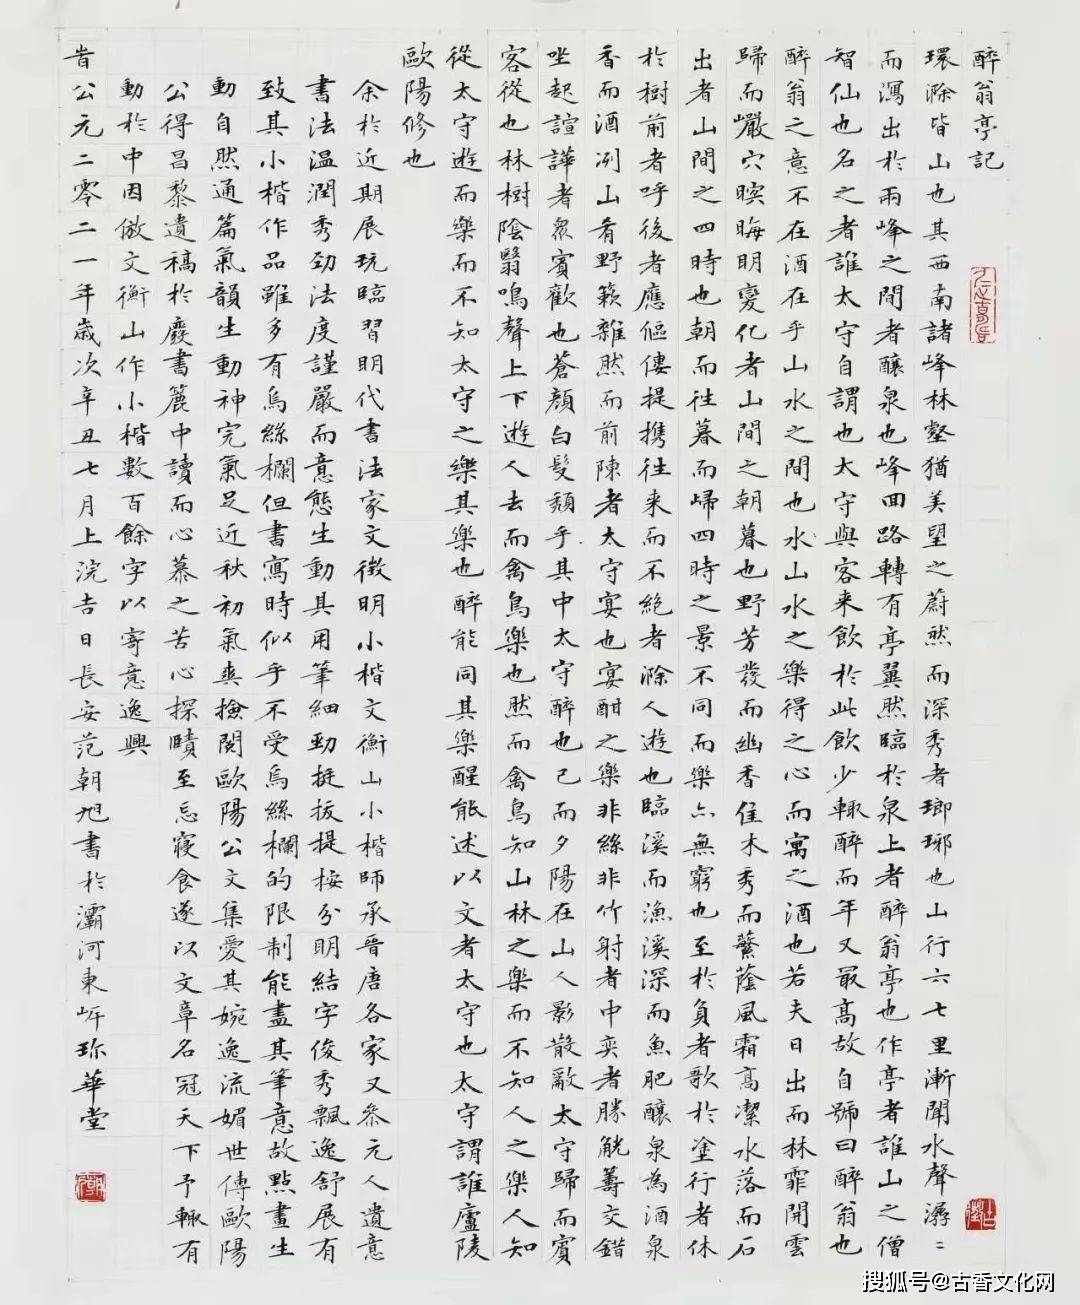 醉翁亭記
環滁皆山也其西南諸峰林壑猶美望之蔚然而深秀者瑯琊也山行六七里漸聞水聲潺〻
而瀉出於兩峰之間者釀泉也峰回路轉有亭翼然臨於泉上者醉翁亭也作亭者誰山之僧
智仙也名之者誰太守自謂也太守與客来飲於此飲少輒醉而年又最高故自號曰醉翁也
醉翁之意不在酒在乎山水之間也水山水之樂得之心而寓之酒也若夫日出而林霏開雲
歸而巖穴暝晦明變化者山間之朝暮也野芳發而幽香佳木秀而蘩蔭風霜高潔水落而石
出者山間之四時也朝而往暮而歸四時之景不同而樂亦無窮也至於負者歌於塗行者休
於樹前者呼後者應傴僂提携往来而不絕者滁人遊也臨溪而漁溪深而魚肥釀泉為酒泉
香而酒冽山肴野簌雜然而前陳者太守宴也宴酣之樂非絲非竹射者中奕者勝觥籌交錯
坐起諠譁者眾賓歡也蒼顏白髮頹乎其中太守醉也已而夕陽在山人影散亂太守歸而賓
客從也林樹陰翳鳴聲上下遊人去而禽鳥樂也然而禽鳥知山林之樂而不知人之樂人知
從太守遊而樂而不知太守之樂其樂也醉能同其樂醒能述以文者太守也太守謂誰廬陵
歐陽修也
余於近期展玩臨習明代書法家文徵明小楷文衡山小楷師承晉唐各家又參元人遺意
書法温潤秀勁法度謹嚴而意態生動其用筆細勁挺拔提按分明結字俊秀飄逸舒展有
致其小楷作品雖多有烏絲欄但書寫時似乎不受烏絲欄的限制能盡其筆意故點畫生
動自然通篇氣韻生動神完氣足近秋初氣爽撿閱歐陽公文集愛其婉逸流媚世傳歐陽
公得昌黎遺稿於廢書簏中讀而心慕之苦心探賾至忘寢食遂以文章名冠天下予輒有
動於中因倣文衡山作小楷數百餘字以寄意逸興
旹公元二零二一年歲次辛丑七月上浣吉日長安范朝旭書於灞河東岸珎華堂
搜狐号@古香文化网